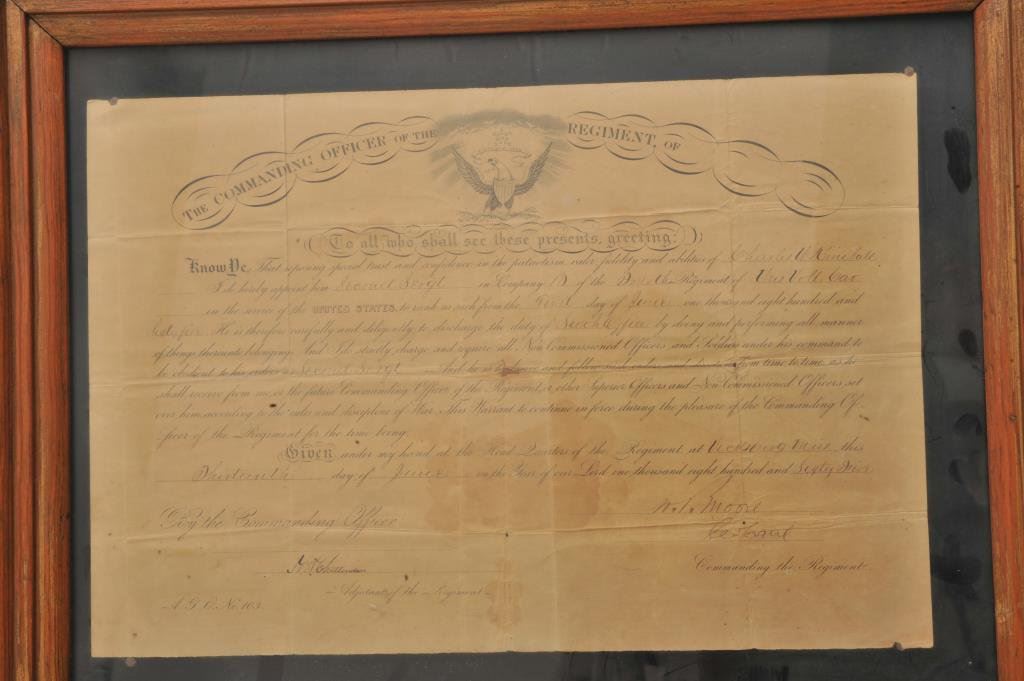 THE COMMANDING OFFICER OF THE REGIMENT, OF
To all who shall see these presents, greeting:
Know Ye, That reposing special trust and confidence in the patriotism, valor, fidelity and abilities of Charles
I do hereby appoint him Second Sergt in Company D of the Regiment of Vols Cav
in the service of the UNITED STATES, to rank as such from the first day of June one thousand eight hundred and
He is therefore carefully and diligently to discharge the duty of by doing and performing all manner
of things thereunto belonging. And I do strictly charge and require all Non-Commissioned Officers and Soldiers under his command to
be obedient to his orders as Second Sergt And he is to observe and follow such orders and directions from time to time, as he
shall receive from me, or the future Commanding Officer of the Regiment, or other Superior Officers and Non-Commissioned Officers set
over him, according to the rules and discipline of War. This Warrant to continue in force during the pleasure of the Commanding Of-
ficer of the Regiment for the time being.
Given under my hand at the Head Quarters of the Regiment at Vicksburg Miss this
Thirteenth day of June in the Year of our Lord one thousand eight hundred and Sixty
By the Commanding Officer
Moore
Commanding the Regiment.
Adjutant of the Regiment
A. G. O. No. 103.